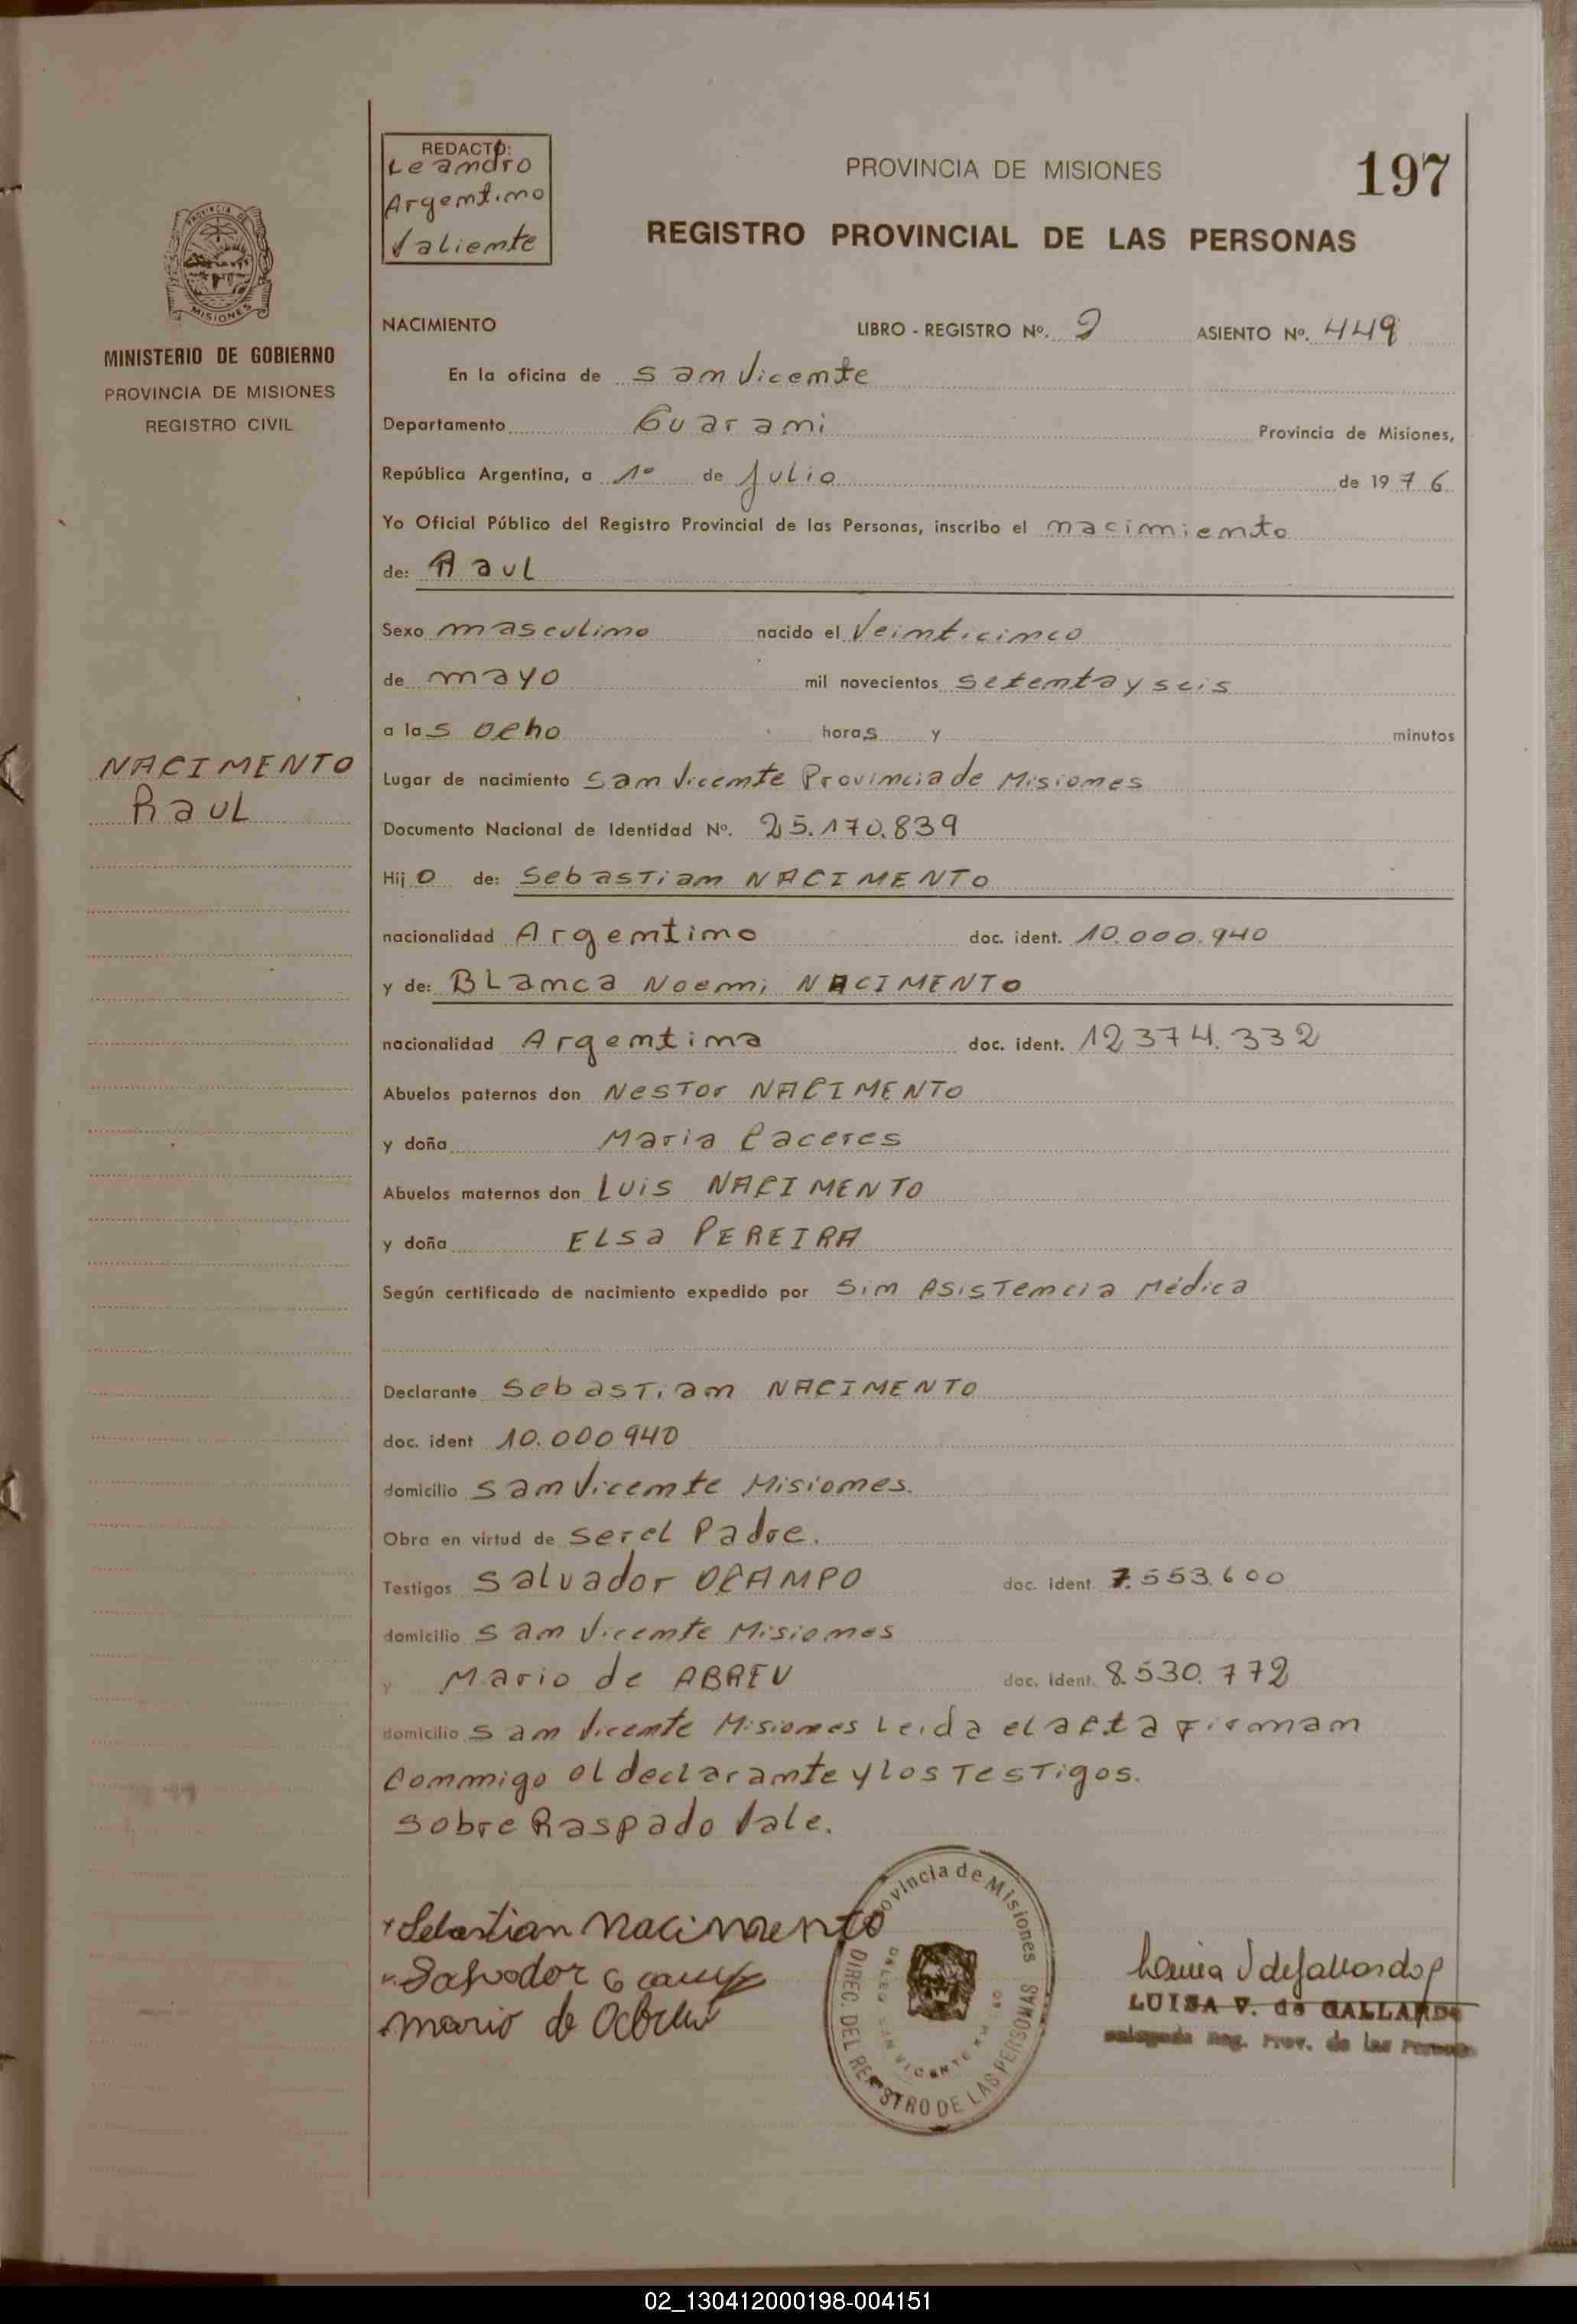 REDACTO:
Leandro
Argentino
Valiente
PROVINCIA DE MISIONES
197
REGISTRO PROVINCIAL DE LAS PERSONAS
PROVINCIA DE
MISIONES
MINISTERIO DE GOBIERNO
PROVINCIA DE MISIONES
REGISTRO CIVIL
NACIMIENTO LIBRO - REGISTRO Nº. 2 ASIENTO Nº. 449
En la oficina de San Vicente
Departamento Guarani Provincia de Misiones,
República Argentina, a 1º de Julio de 1976
Yo Oficial Público del Registro Provincial de las Personas, inscribo el nacimiento
de: Raul
Sexo masculino nacido el Veinticinco
de mayo mil novecientos setenta y seis
a las ocho horas y minutos
NACIMENTO
Raul
Lugar de nacimiento San Vicente Provincia de Misiones
Documento Nacional de Identidad Nº. 25.170.839
Hijo de: Sebastian NACIMENTO
nacionalidad Argentino doc. ident. 10.000.940
y de: Blanca Noemi NACIMENTO
nacionalidad Argentina doc. ident. 12374.332
Abuelos paternos don Nestor NACIMENTO
y doña Maria Caceres
Abuelos maternos don Luis NACIMENTO
y doña Elsa PEREIRA
Según certificado de nacimiento expedido por Sin Asistencia Médica
Declarante Sebastian NACIMENTO
doc. ident 10.000940
domicilio San Vicente Misiones.
Obra en virtud de ser el Padre.
Testigos Salvador OCAMPO doc. ident. 7.553.600
domicilio San Vicente Misiones
y Mario de ABREU doc. ident. 8.530.772
domicilio San Vicente Misiones Leida el acta Firman
Conmigo el declarante y los Testigos.
Sobre Raspado Vale.
Sebastian Nacimento
Salvador Ocampo
Mario de Abreu
Provincia de Misiones
DIREC. DEL REGISTRO DE LAS PERSONAS
SAN VICENTE
LUISA V. de GALLARDO
Reg. Prov. de las
02_130412000198-004151